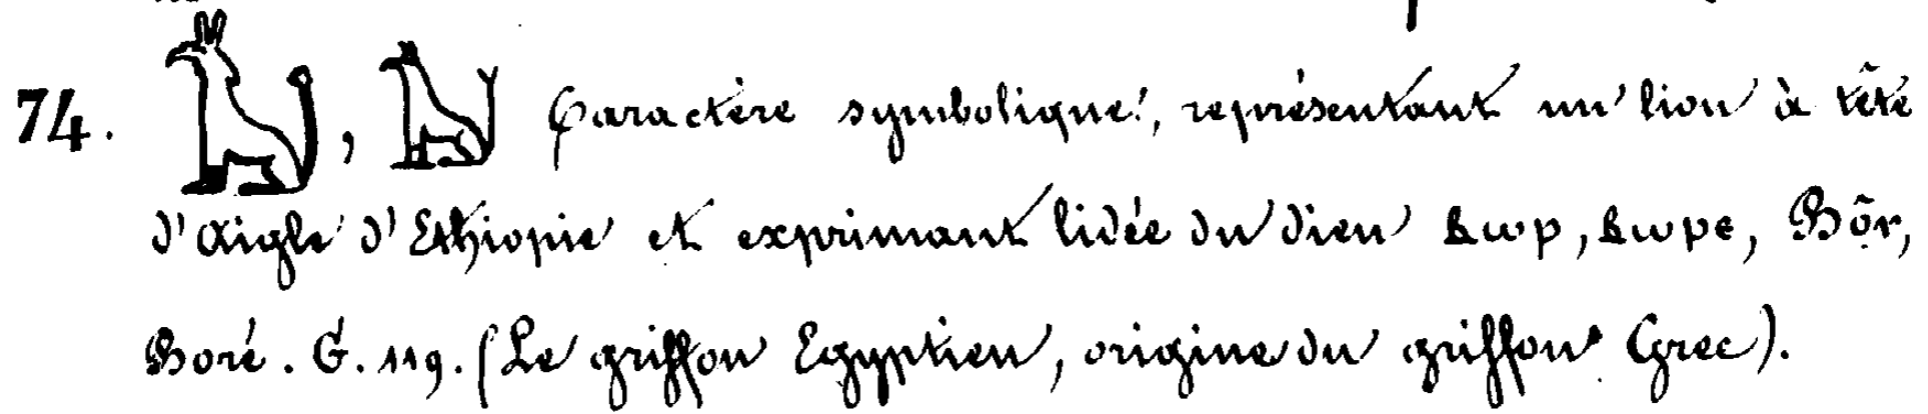 74. , Caractère symbolique, représentant un lion à tête
d'Aigle d'Ethiopie et exprimant lidée du dieu ⲃⲱⲣ, ⲃⲱⲣⲉ, Bôr,
Boré. G. 119. (Le griffon Egyptien, origine du griffon Grec).